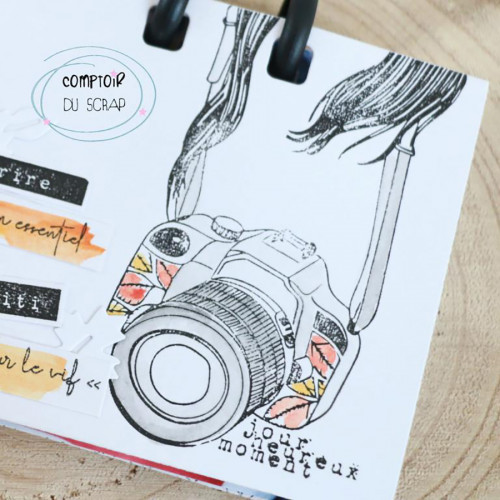 COMPTOIR
DU SCRAP
rire
n essentiel
iti
ur le vif «
jour
heureux
moment